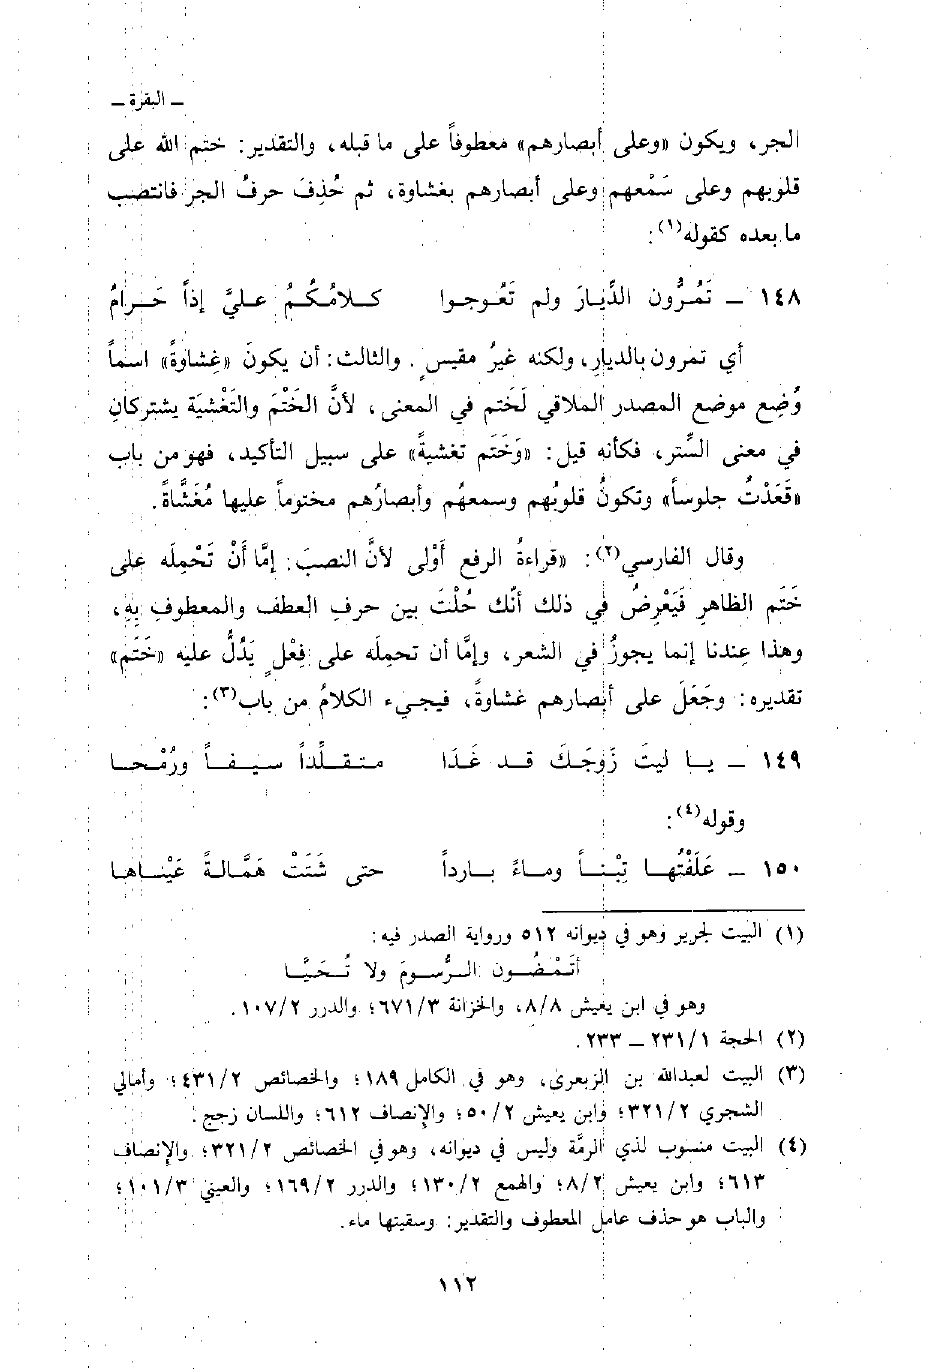 ـ البقرة ـ
الجر، ويكون «وعلى أبصارهم» معطوفاً على ما قبله، والتقدير: ختم الله على
قلوبهم وعلى سَمْعهم وعلى أبصارهم بغشاوة، ثم حُذِفَ حرفُ الجر فانتصب
ما بعده كقوله(١):
١٤٨ ـ تَمُرُّون الدِّيارَ ولم تَعُوجوا كـلامُكُـمُ علـيَّ إذاً حَـرامُ
أي تمرون بالديار، ولكنه غيرُ مقيسٍ. والثالث: أن يكونَ «غِشاوةً» اسماً
وُضِع موضع المصدر الملاقي لَختم في المعنى، لأنَّ الخَتْمَ والتَغْشيَة يشتركانِ
في معنى السِّتر، فكأنه قيل: «وَخَتَم تغشيةً» على سبيل التأكيد، فهو من باب
«قَعَدْتُ جلوساً» وتكونُ قلوبُهم وسمعهُم وأبصارُهم مختوماً عليها مُغَشَّاةً.
وقال الفارسي(٢): «قراءةُ الرفع أَوْلى لأنَّ النصبَ: إمَّا أَنْ تَحْمِلَه على
خَتَم الظاهرِ فَيَعْرِضُ في ذلك أنَّك حُلْتَ بين حرفِ العطف والمعطوفِ بِهِ،
وهذا عِندنا إنما يجوزُ في الشعر، وإمَّا أن تحمِلَه على فِعْلٍ يَدُلُّ عليه «خَتَم»
تقديره: وجَعَلَ على أبصارهم غشاوةً، فيجيء الكلامُ من باب(٣):
١٤٩ ـ يـا ليتَ زَوجَـكَ قـد غَـدَا متـقـلِّـداً سـيـفـاً ورُمْـحـا
وقوله(٤):
١٥٠ ـ عَلَفْتُهـا تِبْنـاً ومـاءً بـارداً حتى شَتَتْ هَمَّالـةً عَيْنـاهـا
(١) البيت لجرير وهو في ديوانه ٥١٢ ورواية الصدر فيه:
أتَـمْـضُـون الـرُّسـومَ ولا تُـحَـيَّـا
وهو في ابن يعيش ٨/٨، والخزانة ٦٧١/٣؛ والدرر ١٠٧/٢.
(٢) الحجة ٢٣١/١ ـ ٢٣٣.
(٣) البيت لعبدالله بن الزبعرى، وهو في الكامل ١٨٩؛ والخصائص ٤٣١/٢؛ وأمالي
الشجري ٣٢١/٢؛ وابن يعيش ٥٠/٢؛ والإنصاف ٦١٢؛ واللسان زجج.
(٤) البيت منسوب لذي الرمَّة وليس في ديوانه، وهو في الخصائص ٣٢١/٢؛ والإنصاف
٦١٣؛ وابن يعيش ٨/٢؛ والهمع ١٣٠/٢؛ والدرر ١٦٩/٢؛ والعيني ١٠١/٣؛
والباب هو حذف عامل المعطوف والتقدير: وسقيتها ماء.
١١٢